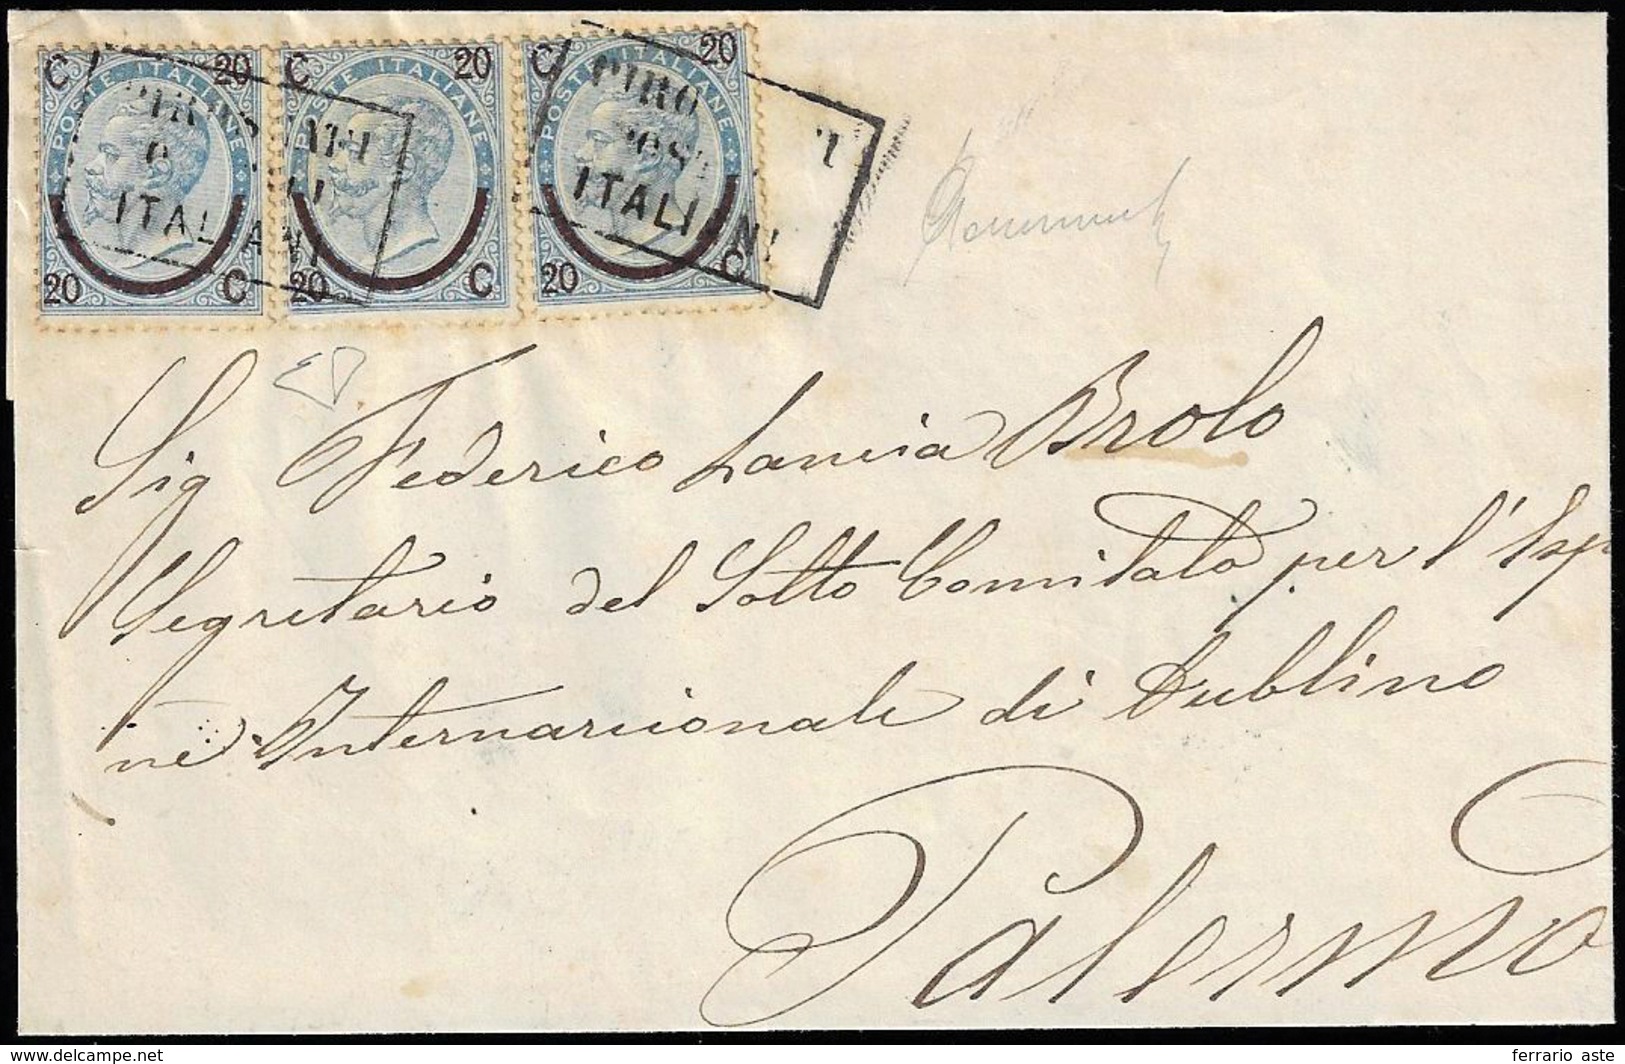 C 20 C 20 C 20
POSTE ITALIANE POSTE ITALIANE POSTE ITALIANE
PIRO
ITALIANI ITALIANI
20 C 20 C 20 C
Sig Federico Lancia Brolo
Segretario del Sotto Comitato per l'Esp
ne Internazionale di Dublino
Palermo
ferrario aste